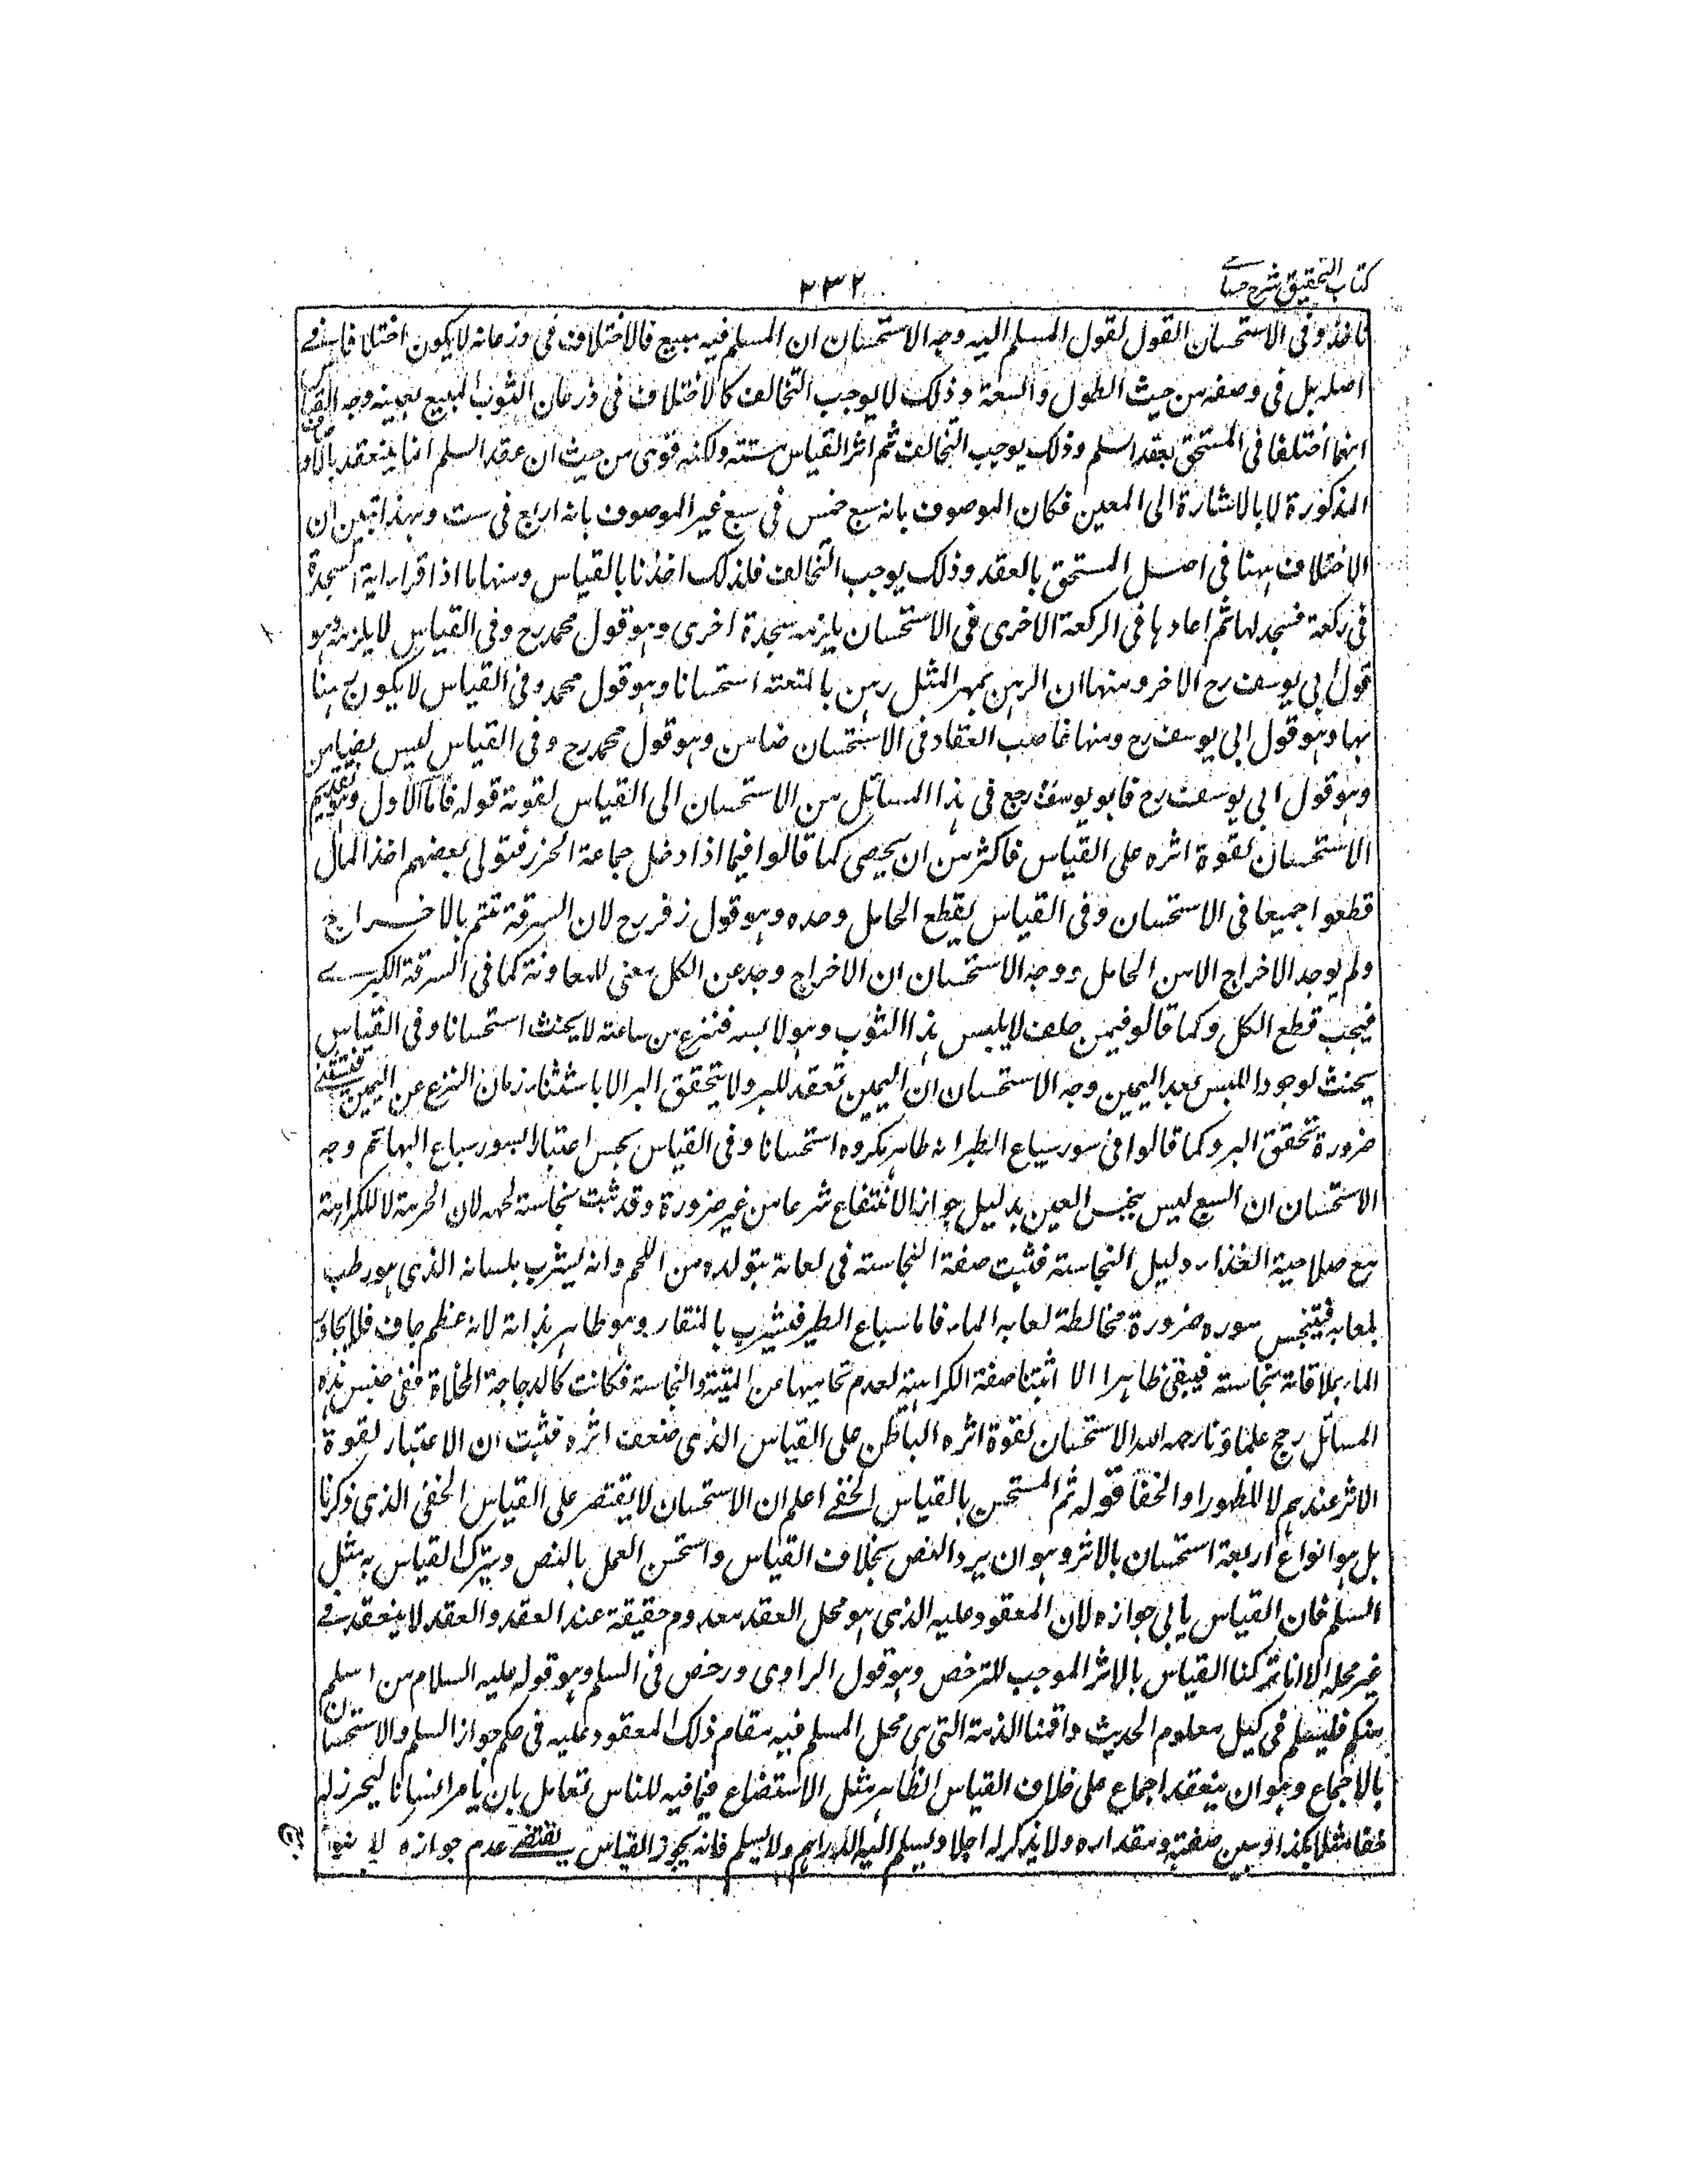 كتاب التحقيق شرح حسامے
٣٣٢
ناخذ وفى الاستحسان القول لقول المسلم اليه وجه الاستحسان ان المسلم فيه مبيع فالاختلاف فى وزعانه لا يكون اختلافا فے
اصله بل فى وصفه من حيث الطول والسعة وذلك لا يوجب التخالف كالاختلاف فى ذرعان الثوب المبيع بعينه وجه القياس
انهما اختلفا فى المستحق بعقد السلم وذلك يوجب التخالف ثم اثر القياس مستتر ولكنه قوى من حيث ان عقد السلم انما ينعقد بالاوصاف
المذكورة لا بالاشارة الى المعين فكان الموصوف بانه سبع خمس فى سبع غير الموصوف بانه اربع فى ست وبهذا تبين ان
الاختلاف ههنا فى اصل المستحق بالعقد وذلك يوجب التخالف فلذلك اخذنا بالقياس ومنها ما اذا قرا راية السجدة
فى ركعة فسجد لها ثم اعادها فى الركعة الاخرى فى الاستحسان يلزمه سجدة اخرى وهو قول محمد رح وفى القياس لا يلزمه وهو
قول ابى يوسف رح الاخر ومنها ان الرهن بمهر المثل رهن بالمتعة استحسانا وهو قول محمد وفى القياس لا يكون رهنا
بها وهو قول ابى يوسف رح ومنها غاصب العقار فى الاستحسان ضامن وهو قول محمد رح وفى القياس ليس بضامن
وهو قول ابى يوسف رح فابو يوسف رجع فى هذا المسائل من الاستحسان الى القياس لقوته قوله فاما الاول وهو تقديم
الاستحسان لقوة اثره على القياس فاكثر من ان يحصى كما قالوا فيما اذا دخل جماعة الحرز فتولى بعضهم اخذ المال
قطعوا جميعا فى الاستحسان وفى القياس يقطع الحامل وحده وهو قول زفر رح لان السرقة تتم بالاخراج
ولم يوجد الاخراج الا من الحامل ووجه الاستحسان ان الاخراج وجد عن الكل معنى للمعاونة كما فى السرقة الكبرے
فيجب قطع الكل وكما قالو فيمن حلف لا يلبس هذا الثوب وهو لابسه فنزع من ساعته لا يحنث استحسانا وفى القياس
يحنث لوجود اللبس بعد اليمين وجه الاستحسان ان اليمين تعقد للبر ولا يتحقق البر الا باستثناء زمان النزع عن اليمين فيستثنے
ضرورة تحقق البر وكما قالوا فى سور سباع الطير انه طاهر مكروه استحسانا وفى القياس نجس اعتبارا بسور سباع البهائم وجه
الاستحسان ان السبع ليس بنجس العين بدليل جواز الانتفاع شرعا من غير ضرورة وقد ثبت نجاسته لحمه لان الحرمة لا للكرامة
مع صلاحية الغذاء دليل النجاسته فثبت صفة النجاسته فى لعابه بتولده من اللحم وانه يشرب بلسانه الذى هو رطب
بلعابه فيتنجس سوره ضرورة مخالطة لعابه الماء فاما سباع الطير فتشرب بالمنقار وهو طاهر بذاته لانه عظم جاف فلا يجاور
الماء بملاقاته نجاسته فيبقى طاهرا الا اثبتنا صفة الكراهية لعدم تحاميها عن الميتة والنجاسته فكانت كالدجاجة المخلاة ففى جنس هذه
المسائل رجح علماؤنا رحمه الله الاستحسان لقوة اثره الباطن على القياس الذى ضعف اثره فثبت ان الاعتبار لقوة
الاثر عندهم لا للظهور او الخفا قوله ثم المستحسن بالقياس الخفے اعلم ان الاستحسان لا يقتصر على القياس الخفى الذى ذكرنا
بل هو انواع اربعة استحسان بالاثر وهو ان يرد النص بخلاف القياس واستحسن العمل بالنص ويترك القياس به مثل
السلم فان القياس يابى جوازه لان المعقود عليه الذى هو محل العقد معدوم حقيقة عند العقد والعقد لا ينعقد فے
غير محله الا انا تركنا القياس بالاثر الموجب للترخص وهو قول الراوى ورخص فى السلم وهو قوله عليه السلام من اسلم
منكم فليسلم فى كيل معلوم الحديث واقمنا الذمة التى هى محل المسلم فيه مقام ذلك المعقود عليه فى حكم جواز السلم والاستحسان
بالاجماع وهو ان ينعقد اجماع على خلاف القياس الظاهر مثل الاستصناع فيما فيه للناس تعامل بان يامر انسانا ليحرز له
خفا مثلا بكذا ويبين صفته ومقداره ولا يذكر له اجلا ويسلم اليه الدراهم ولا يسلم فانه يجوز القياس يقتضے عدم جوازه لا